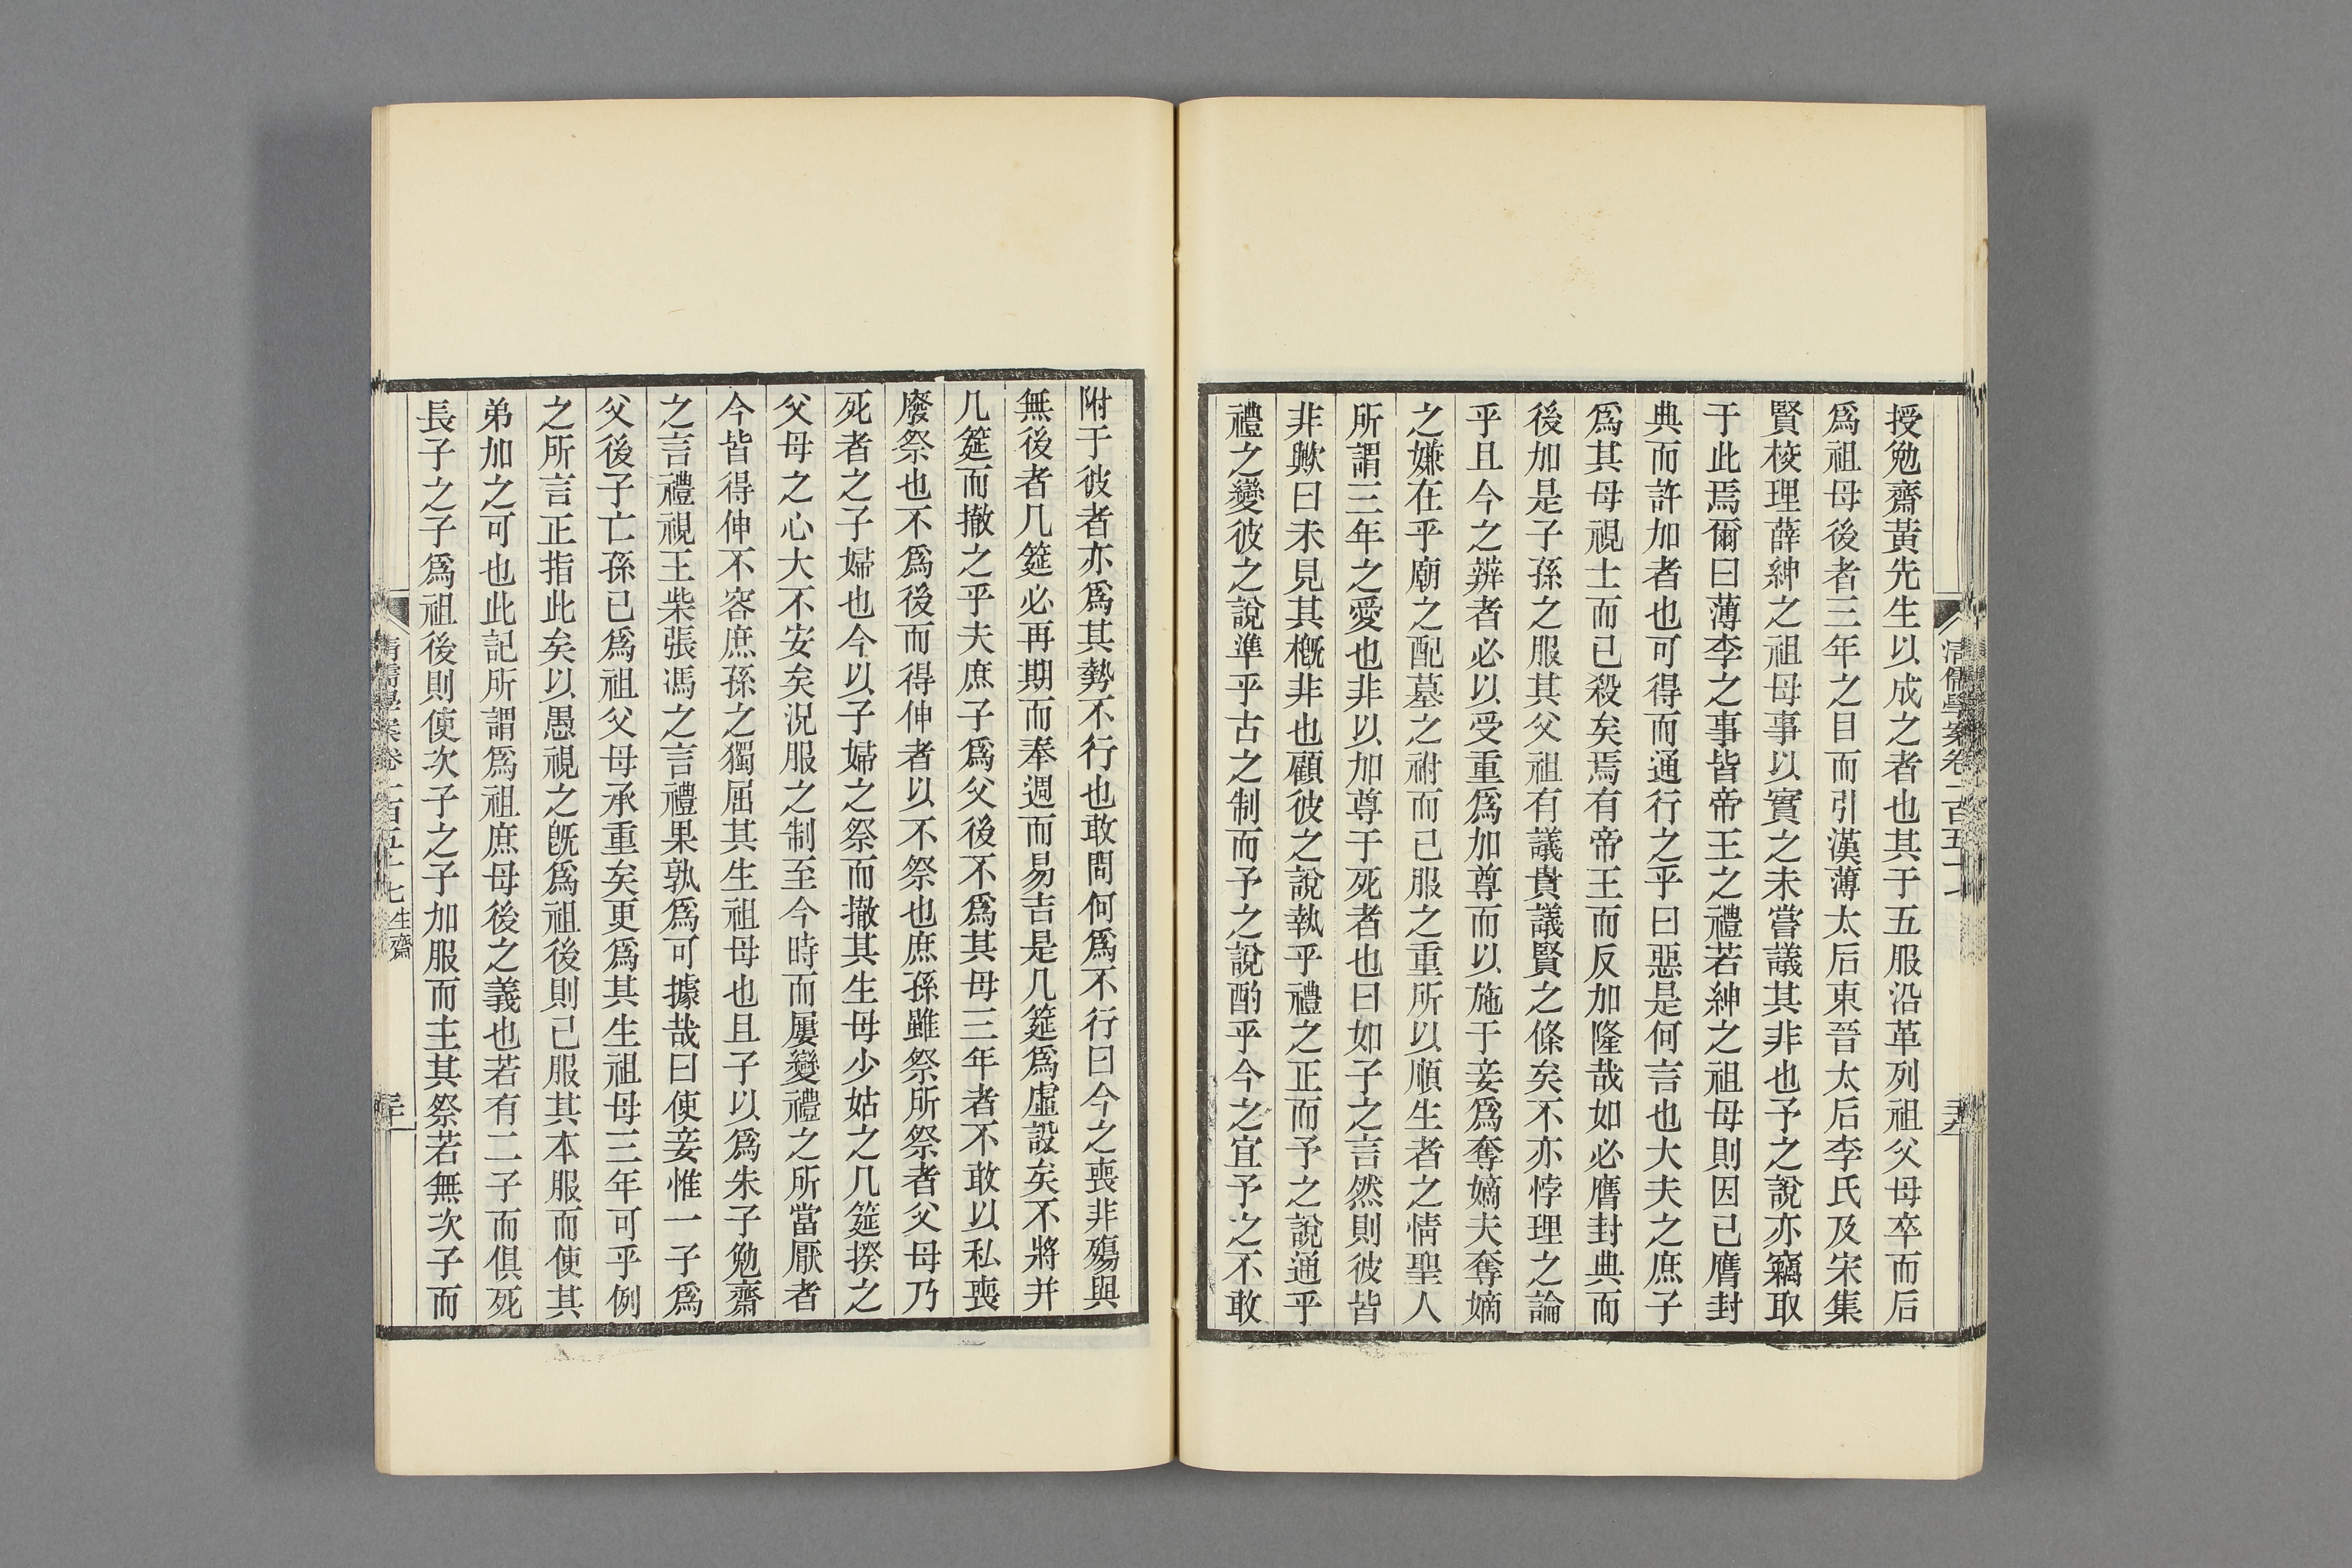 清儒學案卷一百五十七
授勉齋黃先生以成之者也其于五服沿革列祖父母卒而后
爲祖母後者三年之目而引漢薄太后東晉太后李氏及宋集
賢校理薛紳之祖母事以實之未嘗議其非也予之說亦竊取
于此焉爾曰薄李之事皆帝王之禮若紳之祖母則因已膺封
典而許加者也可得而通行之乎曰惡是何言也大夫之庶子
爲其母視士而已殺矣焉有帝王而反加隆哉如必膺封典而
後加是子孫之服其父祖有議貴議賢之條矣不亦悖理之論
乎且今之辨者必以受重爲加尊而以施于妾爲奪嫡夫奪嫡
之嫌在乎廟之配墓之祔而已服之重所以順生者之情聖人
所謂三年之愛也非以加尊于死者也曰如子之言然則彼皆
非歟曰未見其槪非也顧彼之說執乎禮之正而予之說通乎
禮之變彼之說準乎古之制而予之說酌乎今之宜予之不敢
附于彼者亦爲其勢不行也敢問何爲不行曰今之喪非殤與
無後者几筵必再期而奉週而易吉是几筵爲虛設矣不將并
几筵而撤之乎夫庶子爲父後不爲其母三年者不敢以私喪
廢祭也不爲後而得伸者以不祭也庶孫雖祭所祭者父母乃
死者之子婦也今以子婦之祭而撤其生母少姑之几筵揆之
父母之心大不安矣況服之制至今時而屢變禮之所當厭者
今皆得伸不容庶孫之獨屈其生祖母也且子以爲朱子勉齋
之言禮視王柴張馮之言禮果孰爲可據哉曰使妾惟一子爲
父後子亡孫已爲祖父母承重矣更爲其生祖母三年可乎例
之所言正指此矣以愚視之旣爲祖後則已服其本服而使其
弟加之可也此記所謂爲祖庶母後之義也若有二子而俱死
長子之子爲祖後則使次子之子加服而主其祭若無次子而
清儒學案卷一百五十七 生齋